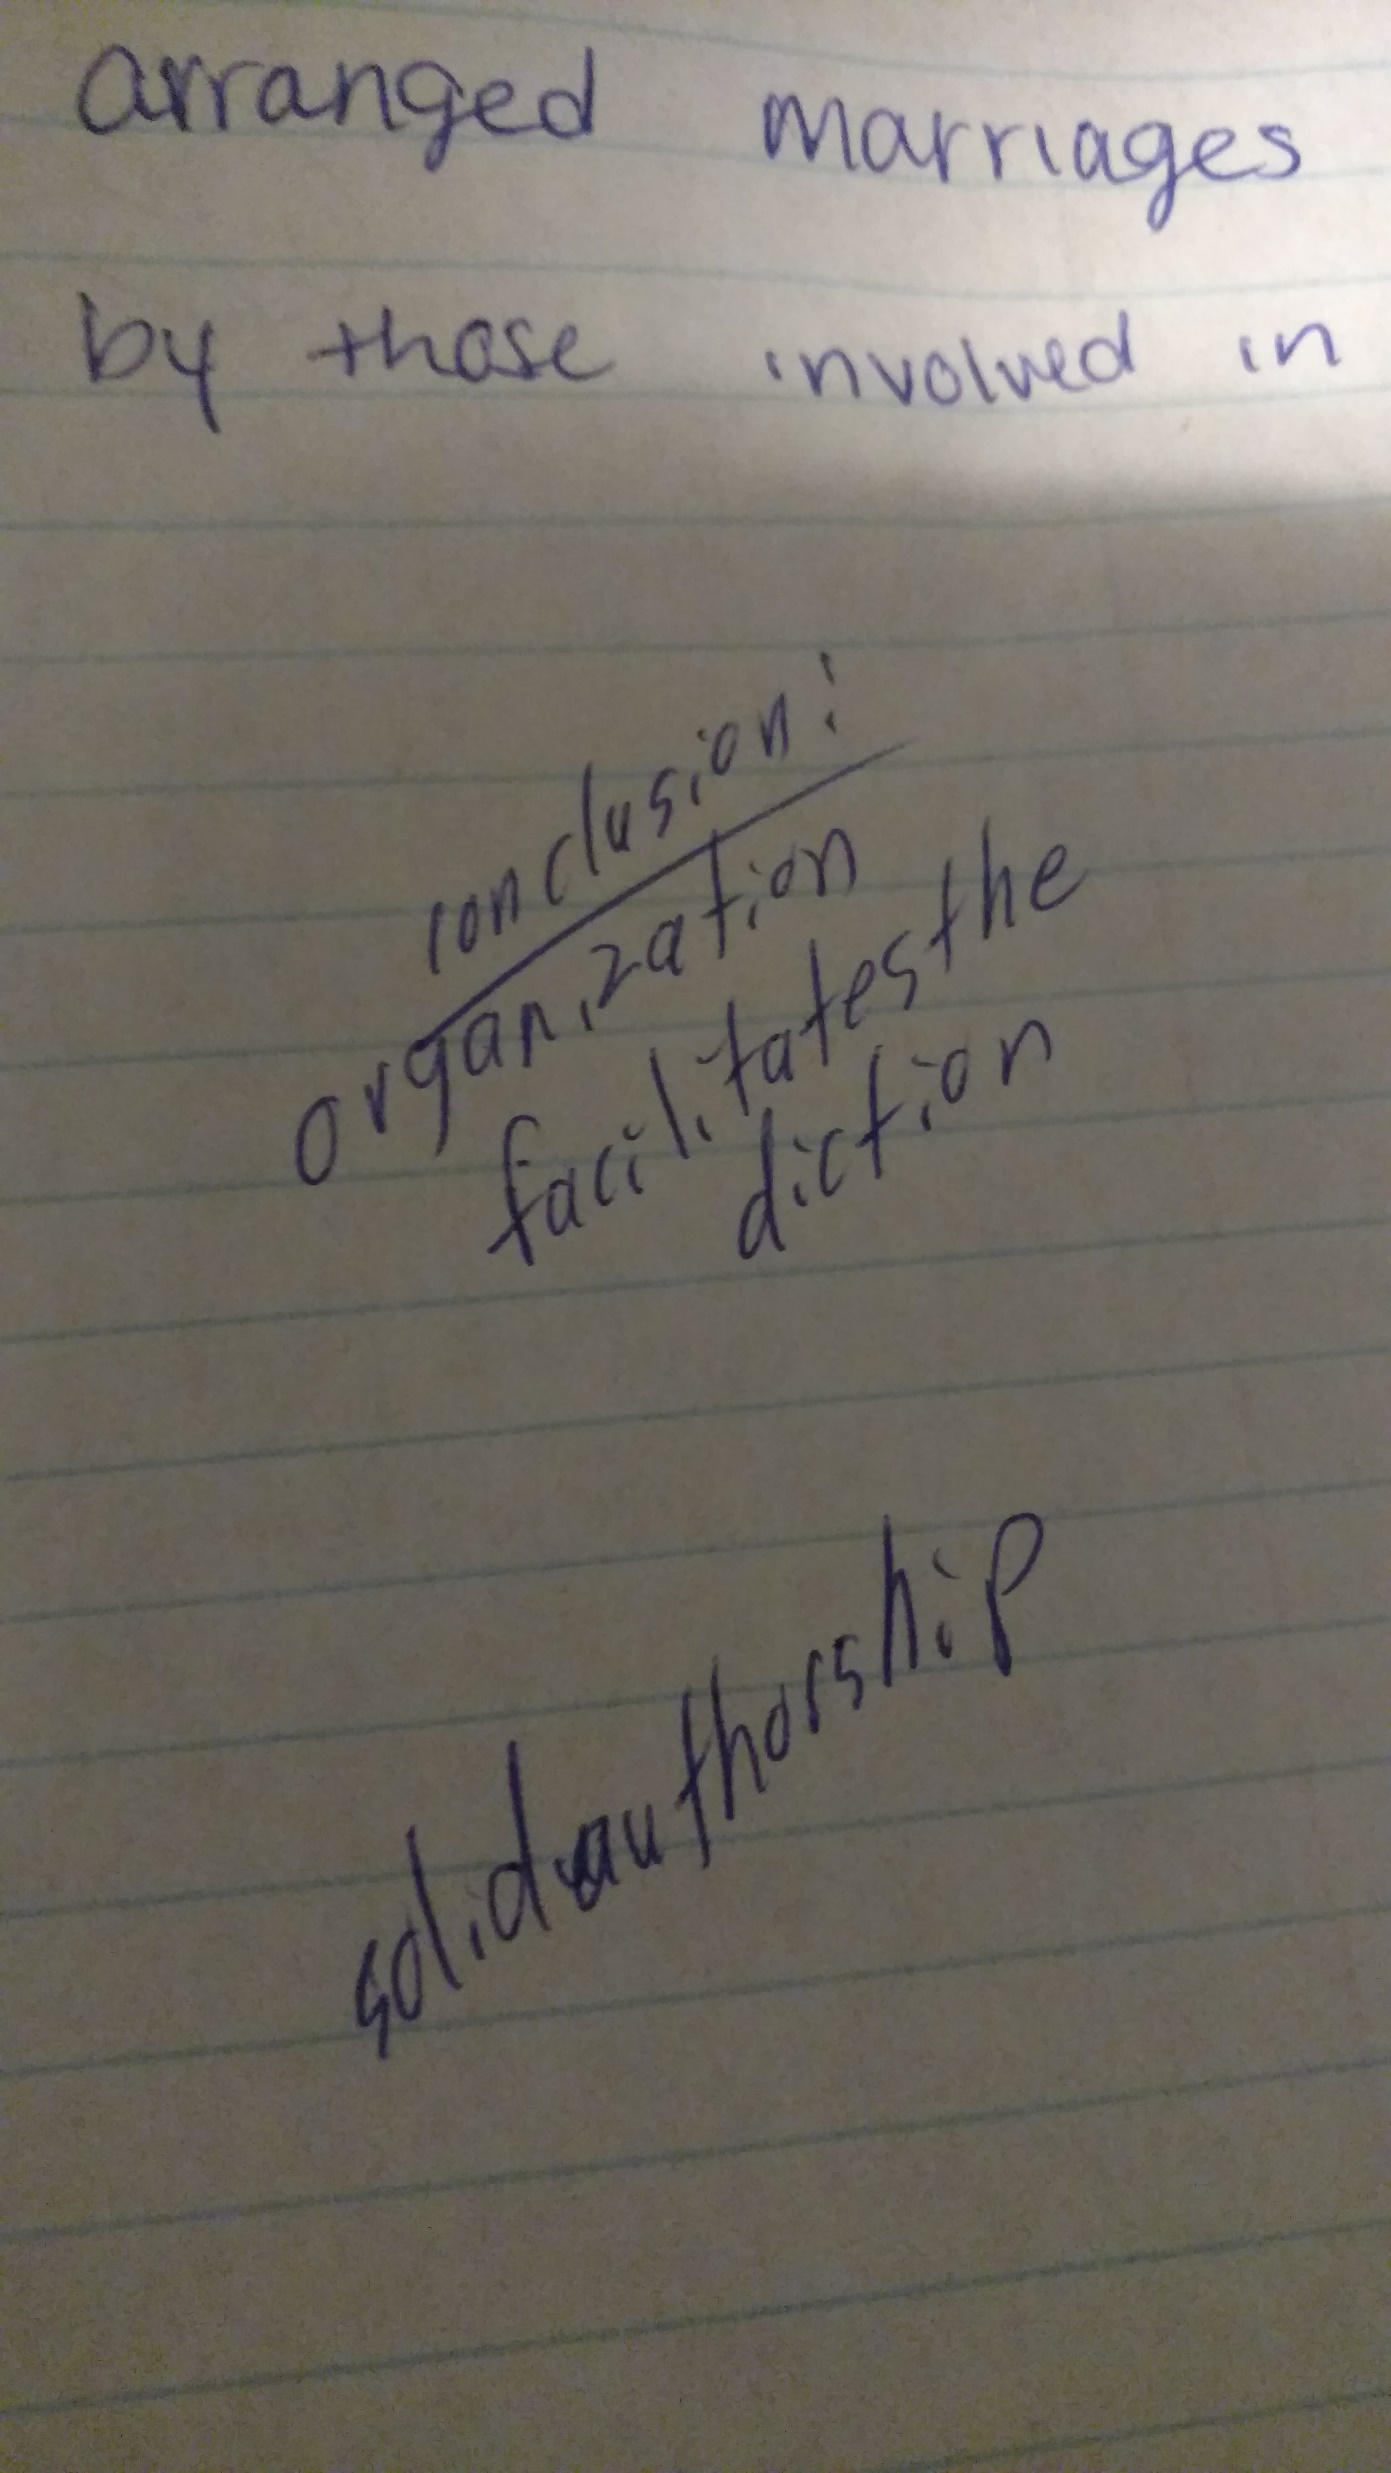 arranged marriages
by those involved in
conclusion:
organization
facilitates the
diction
solid authorship